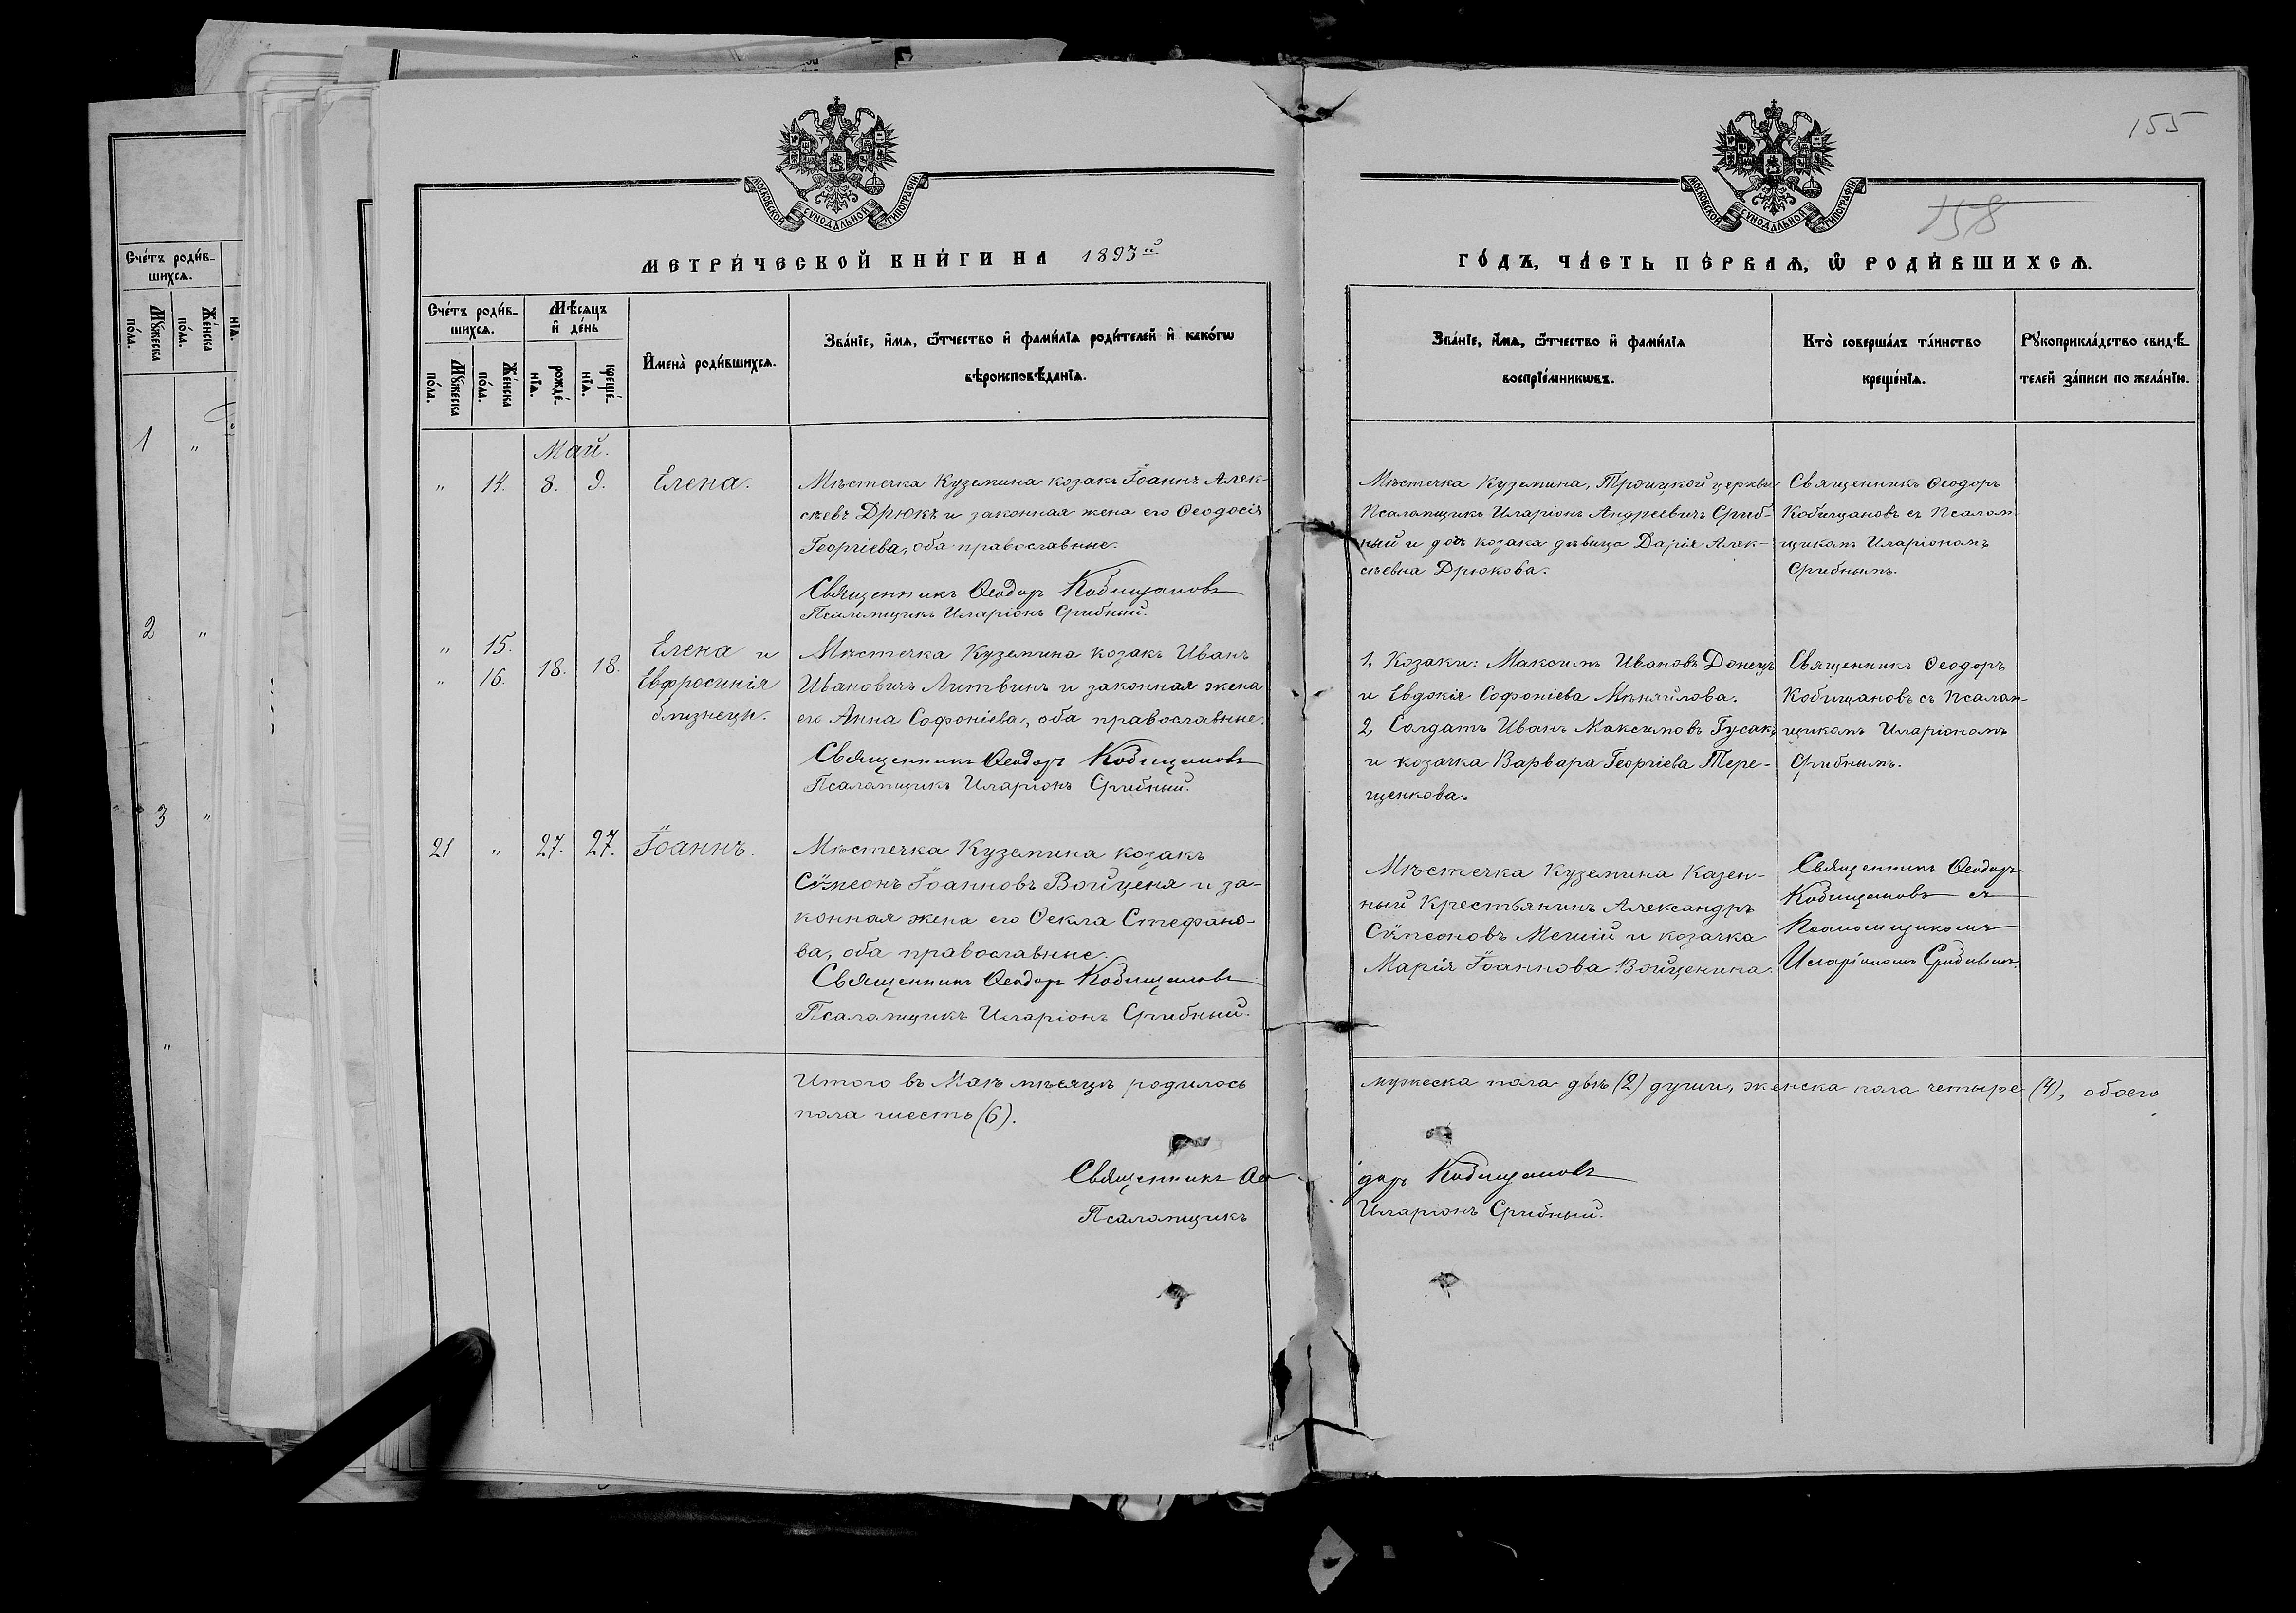 155
158
МОСКОВСКОЙ СѴНОДАЛЬНОЙ ТИПОГРАФІИ
МОСКОВСКОЙ СѴНОДАЛЬНОЙ ТИПОГРАФІИ
МЕТРИ́ЧЕСКОЙ КНИ́ГИ НА 1893й
ГО́ДЪ, ЧА́СТЬ ПЕ́РВАЯ, Ѡ РОДИ́ВШИХСѦ.
Сче́тъ роди́в-
шихсѧ.
Мꙋ́жеска
по́ла.
Же́нска
по́ла.
Мѣ́сѧцъ
и҆ де́нь
рожде́-
нїѧ.
креще́-
нїѧ.
И҆мена̀ роди́вшихсѧ.
Зва́нїе, и҆́мѧ, ѻ҆́тчество и҆ фами́лїѧ роди́телей и҆ како́гѡ
вѣроисповѣ́данїѧ.
Зва́нїе, и҆́мѧ, ѻ҆́тчество и҆ фами́лїѧ
воспрїе́мникѡвъ.
Кто̀ соверша́лъ та́инство
креще́нїѧ.
Рꙋкоприкла́дство свидѣ́-
телей за́писи по жела́нїю.
Сче́тъ роди́в-
шихсѧ.
Мꙋ́жеска
по́ла.
Же́нска
по́ла.
нїѧ.
1 "
2 "
3 "
"
Май.
" 14. 8. 9. Елена.
Мѣстечка Куземина козакъ Іоаннъ Алек-
сѣевъ Дрюкъ и законная жена его Ѳеодосія
Георгіева, оба православные.
Священникъ Ѳеодоръ Кобищановъ
Псаломщикъ Иларіонъ Сребный.
Мѣстечка Куземина, Троицкой церкви
Псаломщикъ Иларіонъ Андреевичъ Среб-
ный и дочь козака дѣвица Дарія Алек-
сѣевна Дрюкова.
Священникъ Ѳеодоръ
Кобищановъ съ Псалом-
щикомъ Иларіономъ
Сребнымъ.
" 15.
" 16.
18. 18.
Елена и
Евфросинія
близнецы.
Мѣстечка Куземина козакъ Иванъ
Ивановичъ Литвинъ и законная жена
его Анна Софоніева, оба православные.
Священникъ Ѳеодоръ Кобищановъ
Псаломщикъ Иларіонъ Сребный.
1, Козаки: Максимъ Ивановъ Донецъ
и Евдокія Софоніева Мѣняйлова.
2, Солдатъ Иванъ Максимовъ Гусакъ
и козачка Варвара Георгіева Тере-
щенкова.
Священникъ Ѳеодоръ
Кобищановъ съ Псалом-
щикомъ Иларіономъ
Сребнымъ.
21 " 27. 27. Іоаннъ.
Мѣстечка Куземина козакъ
Сѵмеонъ Іоанновъ Войценя и за-
конная жена его Ѳекла Стефано-
ва, оба православные.
Священникъ Ѳеодоръ Кобищановъ
Псаломщикъ Иларіонъ Сребный.
Мѣстечка Куземина Казен-
ный Крестьянинъ Александръ
Сѵмеоновъ и козачка
Марія Іоаннова Войценина.
Священникъ Ѳеодоръ
Кобищановъ съ
Псаломщикомъ
Иларіономъ Сребнымъ.
Итого въ Маѣ мѣсяцѣ родилось мужеска пола двѣ (2) души, женска пола четыре (4), обоего
пола шесть (6).
Священникъ Ѳеодоръ Кобищановъ
Псаломщикъ Иларіонъ Сребный.